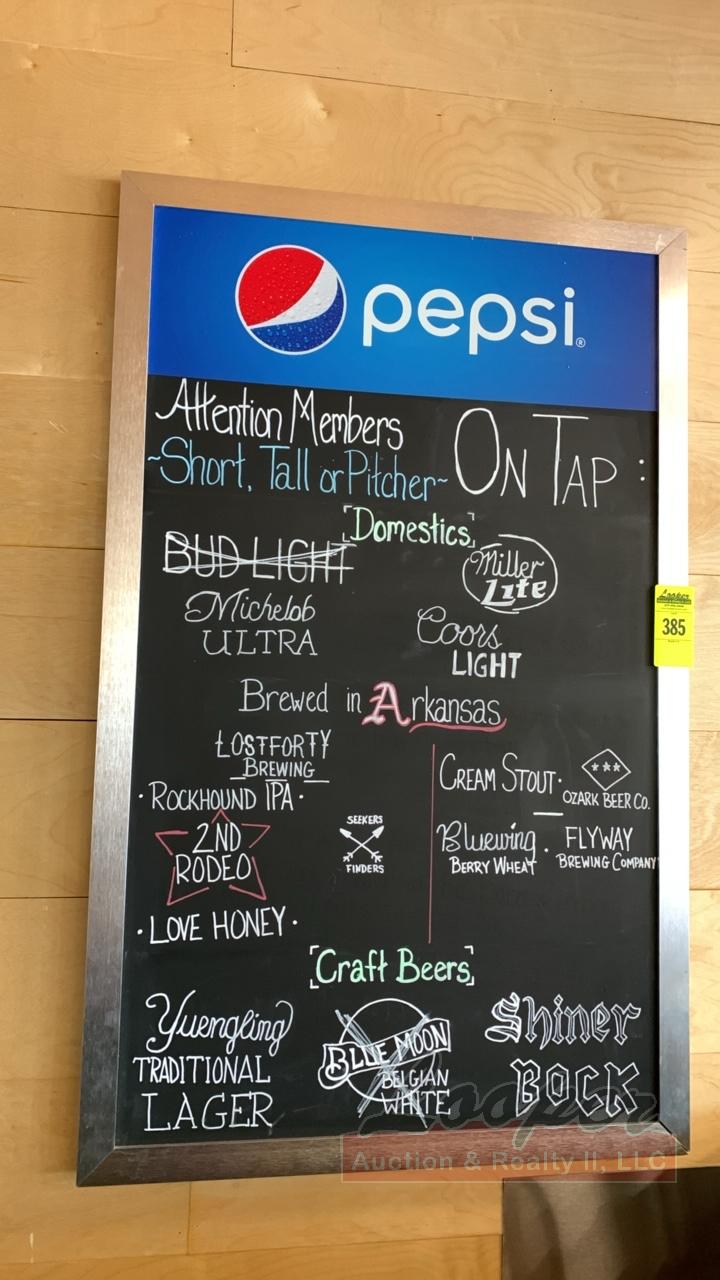 pepsi®
Attention Members
~Short, Tall or Pitcher~
ON TAP :
[Domestics]
BUD LIGHT
Miller
Lite
Michelob
ULTRA
Coors
LIGHT
Brewed in Arkansas
LOSTFORTY
BREWING
• ROCKHOUND IPA •
2ND
RODEO
SEEKERS
FINDERS
• LOVE HONEY •
CREAM STOUT •
OZARK BEER CO.
Bluewing •
BERRY WHEAT
FLYWAY
BREWING COMPANY
[Craft Beers]
Yuengling
TRADITIONAL
LAGER
BLUE MOON
BELGIAN
WHITE
Shiner
BOCK
Looper
385
Looper
Auction & Realty II, LLC